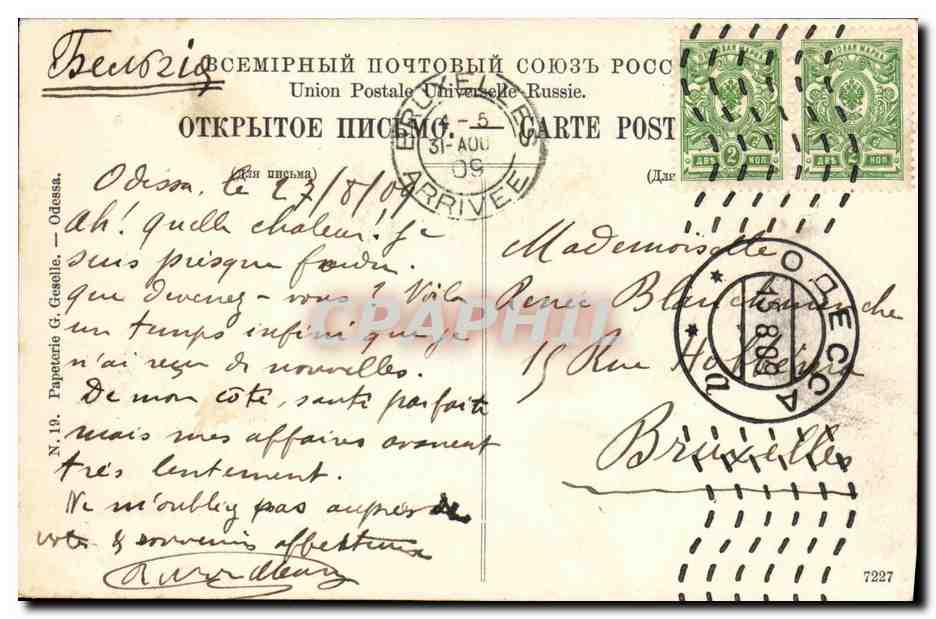 Бельгія
ВСЕМІРНЫЙ ПОЧТОВЫЙ СОЮЗЪ РОСС
Union Postale Universelle Russie.
ОТКРЫТОЕ ПИСЬМО. — CARTE POST
(Для письма)
(Для
BRUXELLES
4-5
31-AOU
09
ARRIVEE
ДВѢ 2 КОП.
ДВѢ 2 КОП.
Odessa, le 27/8/09
Ah! quelle chaleur! je
suis presque fondu.
que devenez-vous? Voilà
un temps infini que je
n'ai reçu de nouvelles.
De mon côté, santé parfaite
mais mes affaires avancent
très lentement.
Ne m'oubliez pas auprès de
votre & souvenirs affectueux
Mademoiselle
Renée Blanckmanche
15 Rue
Bruxelles
ОДЕССА
8 09
N. 19. Papeterie G. Geselle. — Odessa.
7227
CPAPHIL